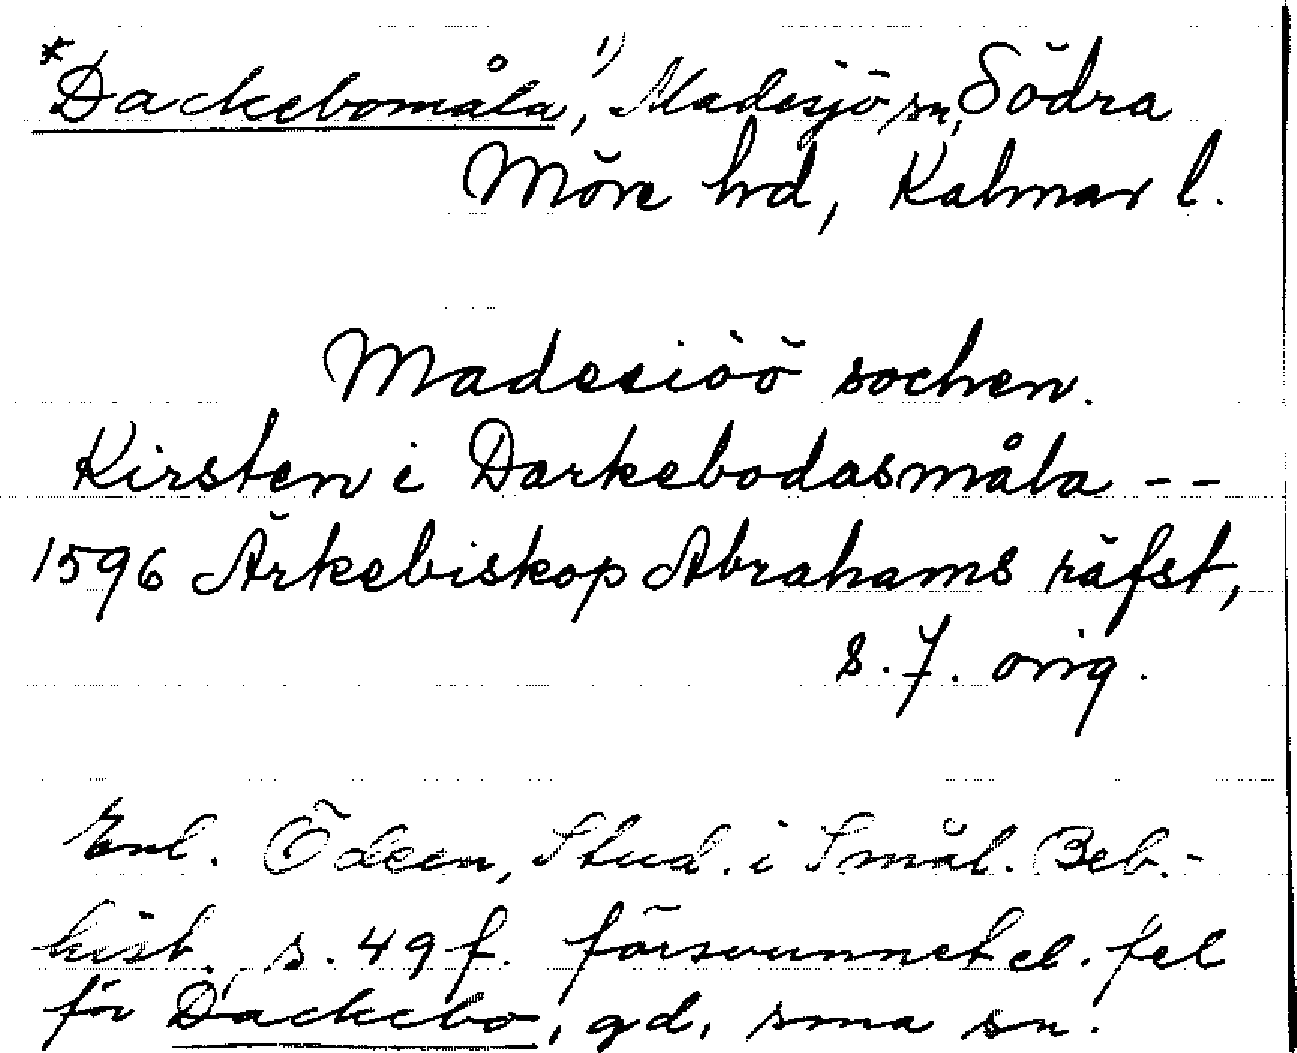 *Dackebomåla,¹⁾ Madesjö sn, Södra
Möre hd, Kalmar l.
Madesiöö sochen.
Kirsten i Darkebodasmåla - -
1596 Ärkebiskop Abrahams räfst,
s. 7. orig.
Enl. Ödeen, Stud. i Smål. Beb.-
hist., s. 49 f. försvunnet el. fel
för Dackebo, gd, sma sn.